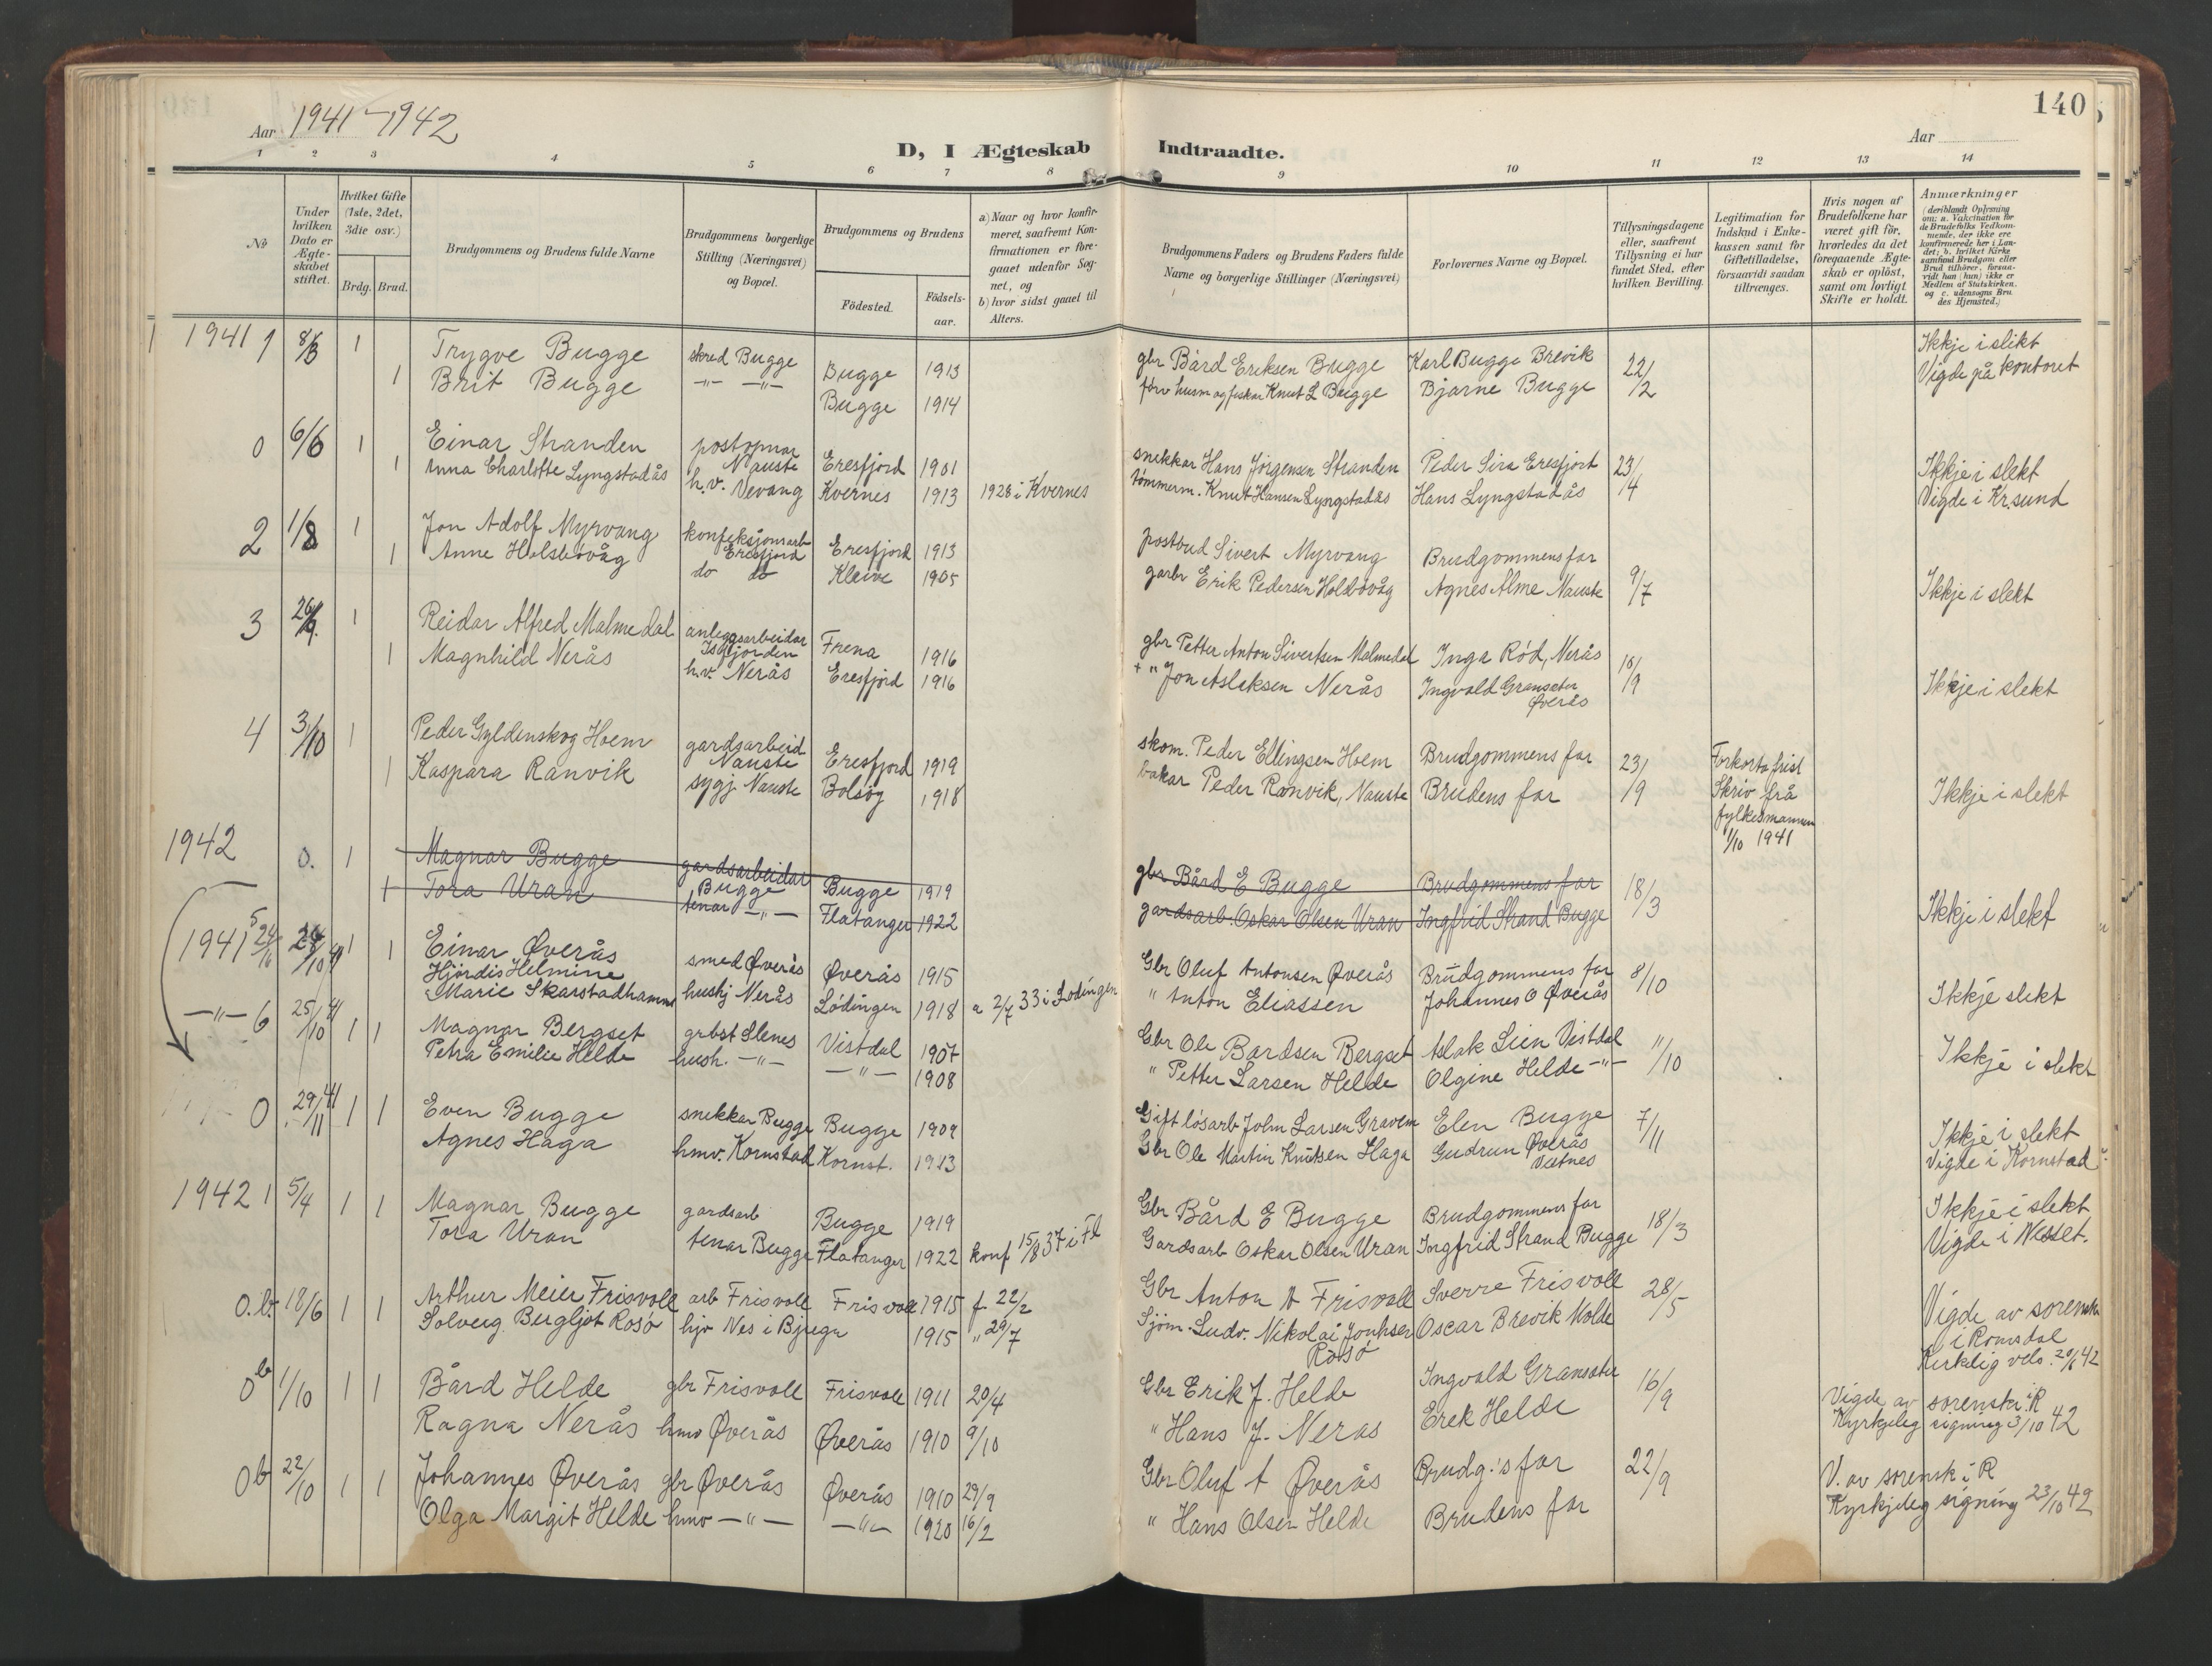 Aar 1941-1942
D, I Ægteskab Indtraadte.
Aar
140
1 2 3 4 5 6 7 8 9 10 11 12 13 14
No
Under hvilken Dato er Ægteskabet stiftet.
Hvilket Gifte (1ste, 2det, 3die osv.)
Brdg. Brud.
Brudgommens og Brudens fulde Navne
Brudgommens borgerlige Stilling (Næringsvei) og Bopæl.
Brudgommens og Brudens
Födested. Födselsaar.
a) Naar og hvor konfirmeret, saafremt Konfirmationen er foregaaet udenfor Sognet, og
b) hvor sidst gaaet til Alters.
Brudgommens Faders og Brudens Faders fulde Navne og borgerlige Stillinger (Næringsvei)
Forlovernes Navne og Bopæl.
Tillysningsdagene eller, saafremt Tillysning ei har fundet Sted, efter hvilken Bevilling.
Legitimation for Indskud i Enkekassen samt for Giftetilladelse, forsaavidt saadan tiltrænges.
Hvis nogen af Brudefolkene har været gift för, hvorledes da det foregaaende Ægteskab er oplöst, samt om lovligt Skifte er holdt.
Anmærkninger (deriblandt Oplysning om: a. Vakcination for de Brudefolks Vedkommende, der ikke ere konfirmerede her i Landet; b. hvilket Kirkesamfund Brudgom eller Brud tilhörer, forsaavidt han (hun) ikke er Medlem af Statskirken, og c. udensogns Brudes Hjemsted.)
1941 1 8/3 1 Trygve Bugge skred Bugge Bugge 1913 gbr Bård Eriksen Bugge Karl Bugge Brevik 22/2 Ikkje i slekt
1 Brit Bugge -"- -"- Bugge 1914 forv husm og fiskar Knut L Bugge Bjarne Bugge Vigde på kontoret
0 6/6 1 Einar Stranden postopnar Nauste Eresfjord 1901 snekkar Hans Jörgensen Stranden Peder Sira Eresfjord 23/4 Ikkje i slekt
1 Anna Charlotte Lyngstadås h.v. Vevang Kvernes 1913 1928 i Kvernes tömmerm. Knut Hansen Lyngstadås Hans Lyngstadås Vigde i Kr.sund
2 1/8 1 Jon Adolf Myrvang konfeksjonsarb Eresfjord Eresfjord 1913 postbud Sivert Myrvang Brudgommens far
1 Anne Holsbøvåg do do Kleive 1905 garbr Erik Pedersen Holsbøvåg Agnes Alme Nauste 9/7 Ikkje i slekt
3 26/9 1 Reidar Alfred Malmedal anleggsarbeidar Isfjorden Frena 1916 gbr Petter Anton Sivertsen Malmedal Inga Rød, Nerås 10/9
1 Magnhild Nerås h.v. Nerås Eresfjord 1916 + " Jon Aslaksen Nerås Ingvald Gransæter Øverås Ikkje i slekt
4 3/10 1 Peder Gyldenskog Hoem gardsarbeid Nauste Eresfjord 1919 skom. Peder Ellingsen Hoem Brudgommens far 23/9 Forkorta frist
1 Kaspara Ranvik sygj. Nauste Bolsøy 1918 bakar Peder Ranvik, Nauste Brudens far Skriv frå fylkesmannen 1/10 1941 Ikkje i slekt
1942 0. 1 Magnar Bugge gardsarbeidar Bugge Bugge 1919 gbr Bård E Bugge Brudgommens far 18/3
1 Tora Uran tenar -"- Flatanger 1922 gardsarb. Oskar Olsen Uran Ingfrid Strand Bugge Ikkje i slekt
1941 5 1 1 Einar Øverås smed Øverås Øverås 1915 Gbr Oluf Antonsen Øverås Brudgommens far 8/10
Hjördis Helmine Marie Skarstadhamn hushj Nerås Lødingen 1918 a 2/7 33 i Lødingen " Anton Eliassen Johannes O Øverås Ikkje slekt
-"- 6 25/10 41 1 1 Magnar Bergset grbst Slenes Vistdal 1907 Gbr Ole Bardsen Bergset Aslak Lien Vistdal 11/10
Petra Emilie Helde hush. -"- -"- 1908 " Petter Larsen Helde Olgine Helde -"- Ikkje i slekt
0 29/11 41 1 1 Even Bugge snekkar Bugge Bugge 1909 Gift løsarb John Larsen Gravem Elen Bugge 7/11 Ikkje i slekt
Agnes Haga hmv. Kornstad Kornst. 1913 Gbr Ole Martin Knutsen Haga Gudrun Øverås Vigde i Kornstad
1942 1 5/4 1 1 Magnar Bugge gardsarb Bugge 1919 Gbr Bård E Bugge Brudgommens far 18/3 Ikkje i slekt
Tora Uran tenar Bugge Flatanger 1922 konf 15/8 37 i Fl Gardsarb Oskar Olsen Uran Ingfrid Strand Bugge Vigde i Nesset.
0.b. 18/6 1 1 Arthur Meier Frisvoll arb Frisvoll Frisvoll 1915 f. 22/2 Gbr Anton A Frisvoll Sverre Frisvoll 28/5 Vigde av sorensk i Romsdal
Solveig Bergljot Rosø hjv Nes i 1915 " 29/7 Sjöm. Ludv. Nikolai Rosø Oscar Brevik Molde Kirkelig vels. 20/6 42
0b 1/10 1 1 Bård Helde gbr Frisvoll Frisvoll 1911 20/4 Gbr Erik J. Helde Ingvald Gransæter 16/9 Vigde av sorensk. i R
Ragna Nerås hmv Øverås Øverås 1910 9/10 " Hans J. Neras Erik Helde Kyrkjeleg signing 3/10 42
0b 22/10 1 1 Johannes Øverås gbr Øverås Øverås 1910 29/9 Gbr Oluf A Øverås Brudg.'s far 22/9 V. av sorensk i R
Olga Margit Helde hmv -"- -"- 1920 16/2 " Hans Olsen Helde Brudens far Kyrkjeleg signing 23/10 42